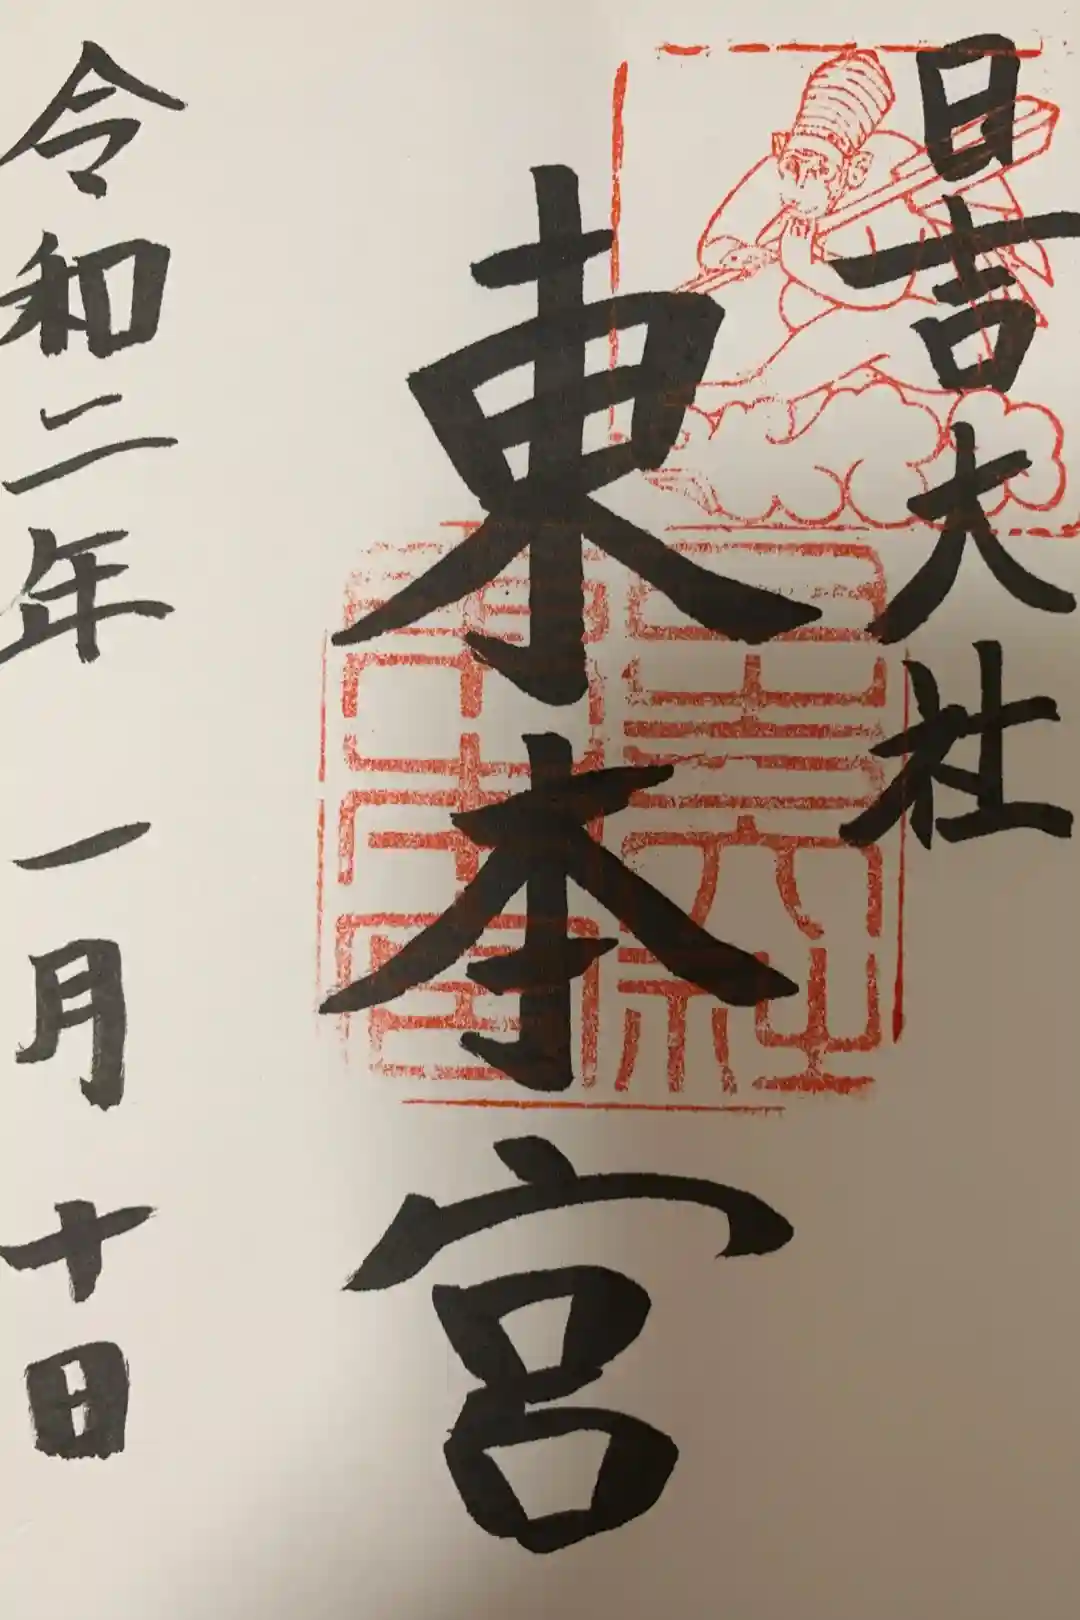 日吉大社
東本宮
令和二年 一月 十日